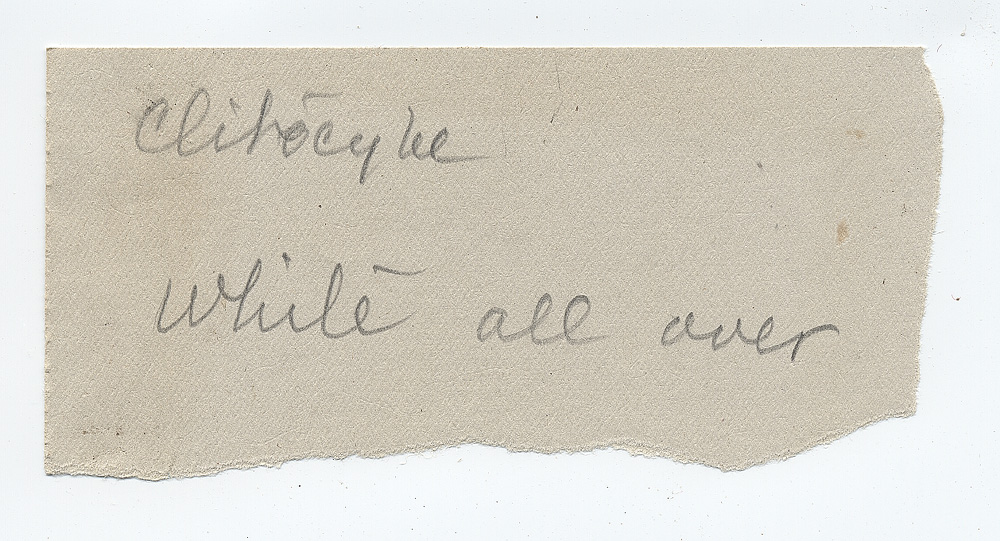 Clitocybe
White all over